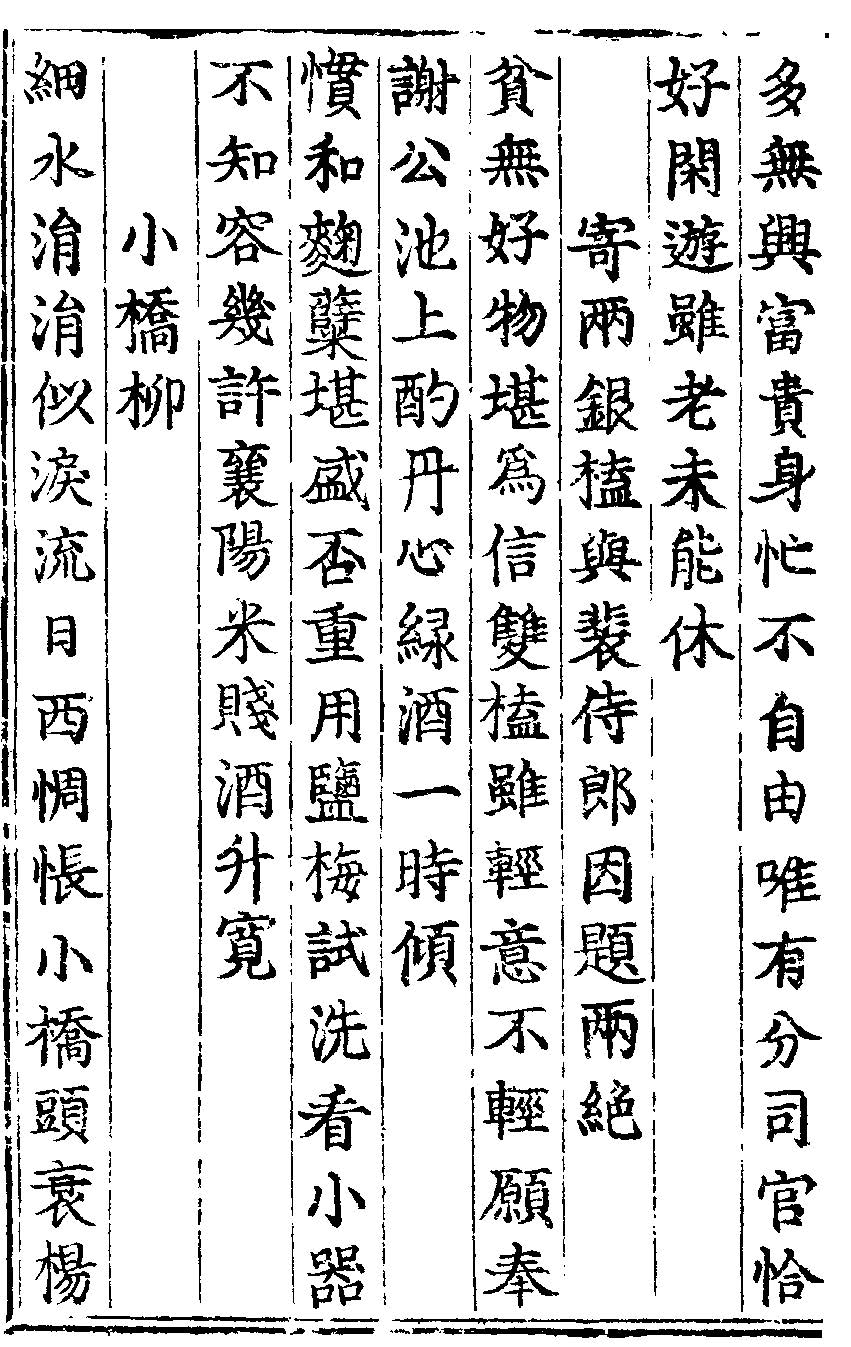 多無興富貴身忙不自由唯有分司官恰
好閑遊雖老未能休
寄兩銀榼與裴侍郎因題兩絶
貧無好物堪爲信雙榼雖輕意不輕願奉
謝公池上酌丹心緑酒一時傾
慣和麴糵堪盛否重用鹽梅試洗看小器
不知容幾許襄陽米賤酒升寛
小橋柳
細水涓涓似淚流日西惆悵小橋頭衰楊